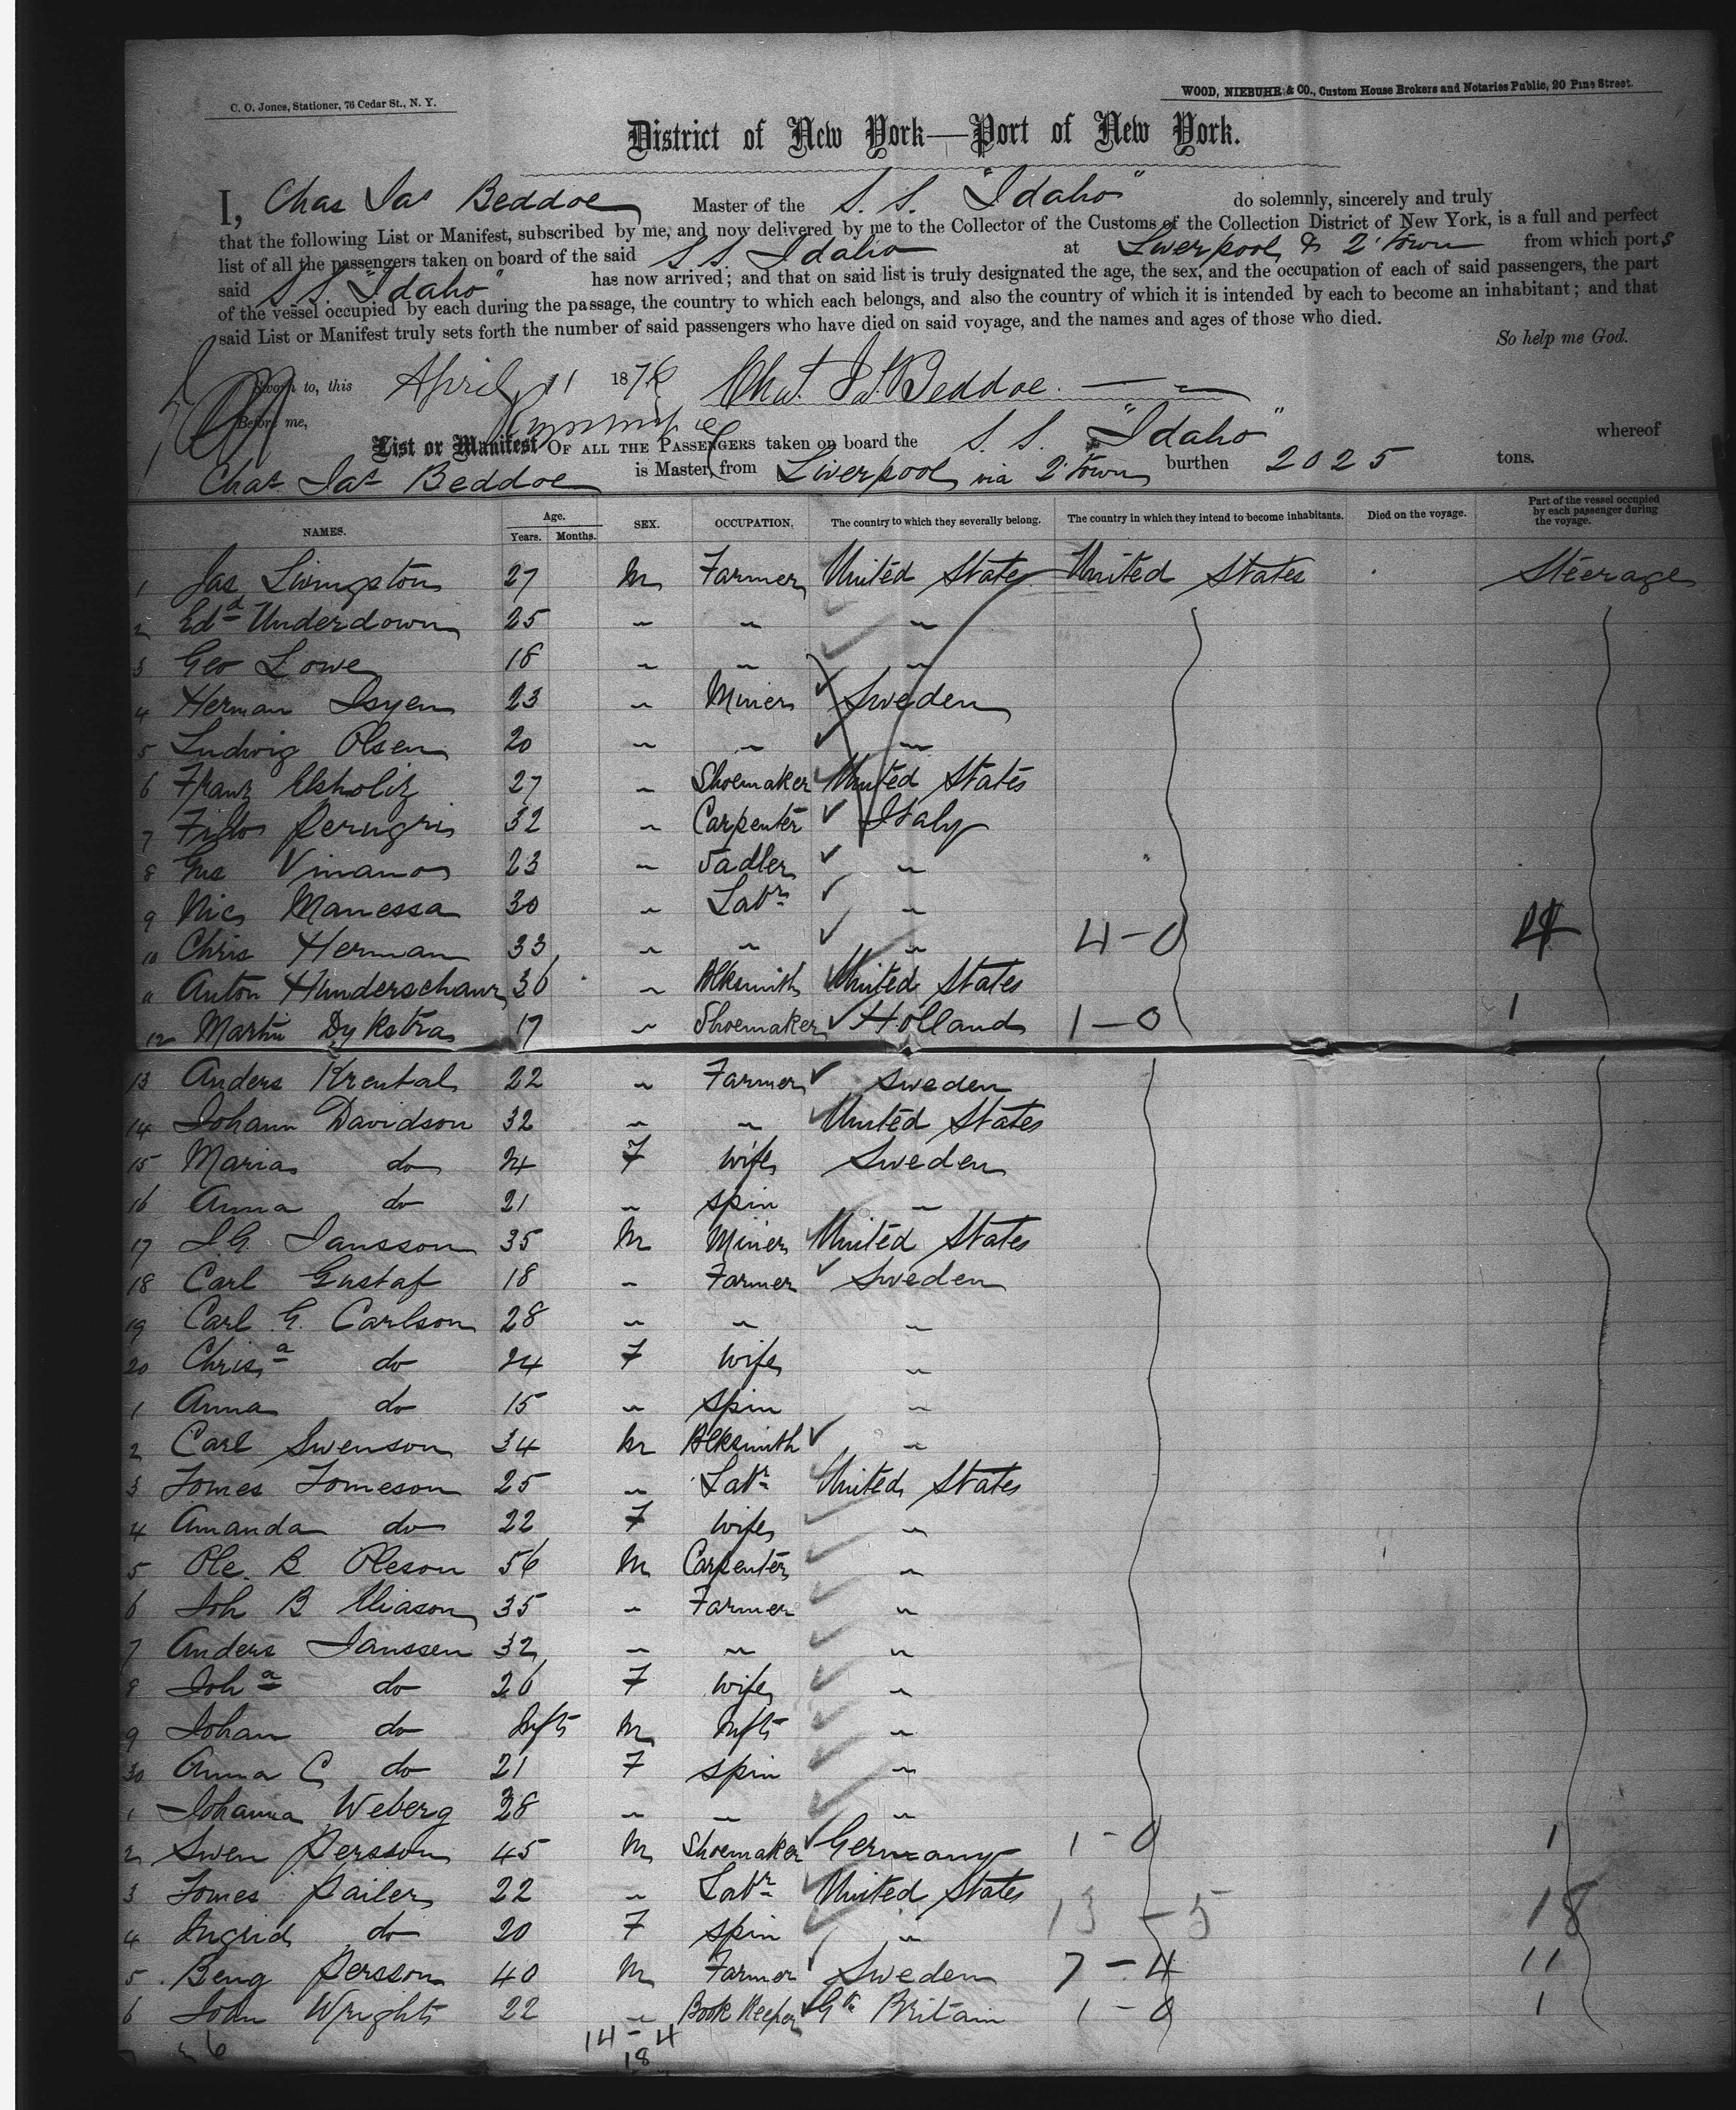 C. O. Jones, Stationer, 76 Cedar St., N. Y.
WOOD, NIEBUHR & CO., Custom House Brokers and Notaries Public, 20 Pine Street.
District of New York—Port of New York.
I, Chas Jas Beddoe Master of the S. S. "Idaho" do solemnly, sincerely and truly
that the following List or Manifest, subscribed by me, and now delivered by me to the Collector of the Customs of the Collection District of New York, is a full and perfect
list of all the passengers taken on board of the said S S Idaho at Liverpool & Q'town from which ports
said S S. "Idaho" has now arrived; and that on said list is truly designated the age, the sex, and the occupation of each of said passengers, the part
of the vessel occupied by each during the passage, the country to which each belongs, and also the country of which it is intended by each to become an inhabitant; and that
said List or Manifest truly sets forth the number of said passengers who have died on said voyage, and the names and ages of those who died.
So help me God.
Sworn to, this April 11 1876 Chas. Jas. Beddoe.
Before me,
List or Manifest OF ALL THE PASSENGERS taken on board the S. S. "Idaho" whereof
Chas Jas Beddoe is Master, from Liverpool via Q'town burthen 2025 tons.
NAMES. Age. Years. Months. SEX. OCCUPATION. The country to which they severally belong. The country in which they intend to become inhabitants. Died on the voyage. Part of the vessel occupied by each passenger during the voyage.
1 Jas Livingston 27 M Farmer United States United States Steerage
2 Edd Underdown 25 " " "
3 Geo Lowe 18 " " "
4 Herman 23 " Miner Sweden
5 Ludwig Olsen 20 " " "
6 Franz 27 " Shoemaker United States
7 32 " Carpenter Italy
8 23 " Sadler "
9 Nic Manessa 30 " Labr "
10 Chris Herman 33 " " " 4-0 4
11 Anton 36 " Blksmith United States
12 Martin Dykstra 17 " Shoemaker Holland 1-0 1
13 Anders 22 " Farmer Sweden
14 Johann Davidson 32 " " United States
15 Maria do 24 F wife Sweden
16 Anna do 21 " spin "
17 J. G. Jansson 35 M Miner United States
18 Carl Gustaf 18 " Farmer Sweden
19 Carl G. Carlson 28 " " "
20 Chrisa do 24 F wife "
1 Anna do 15 " spin "
2 Carl Swenson 34 M Blksmith "
3 Jomes Jomeson 25 " Labr United States
4 Amanda do 22 F wife "
5 Ole B Oleson 56 M Carpenter "
6 Joh B Eliason 35 " Farmer "
7 Anders Janssen 32 " " "
8 Joha do 26 F wife "
9 Johan do Inft M Inft "
30 Anna C do 21 F spin "
1 Johanna Weberg 28 " " "
2 Swen Persson 45 M Shoemaker Germany 1-0 1
3 Jomes Pailer 22 " Labr United States 13-5 18
4 Ingrid do 20 F spin "
5 Beng Persson 40 M Farmer Sweden 7-4 11
6 John Wright 22 " Book Keeper Gt Britain 1-0 1
14-4
18